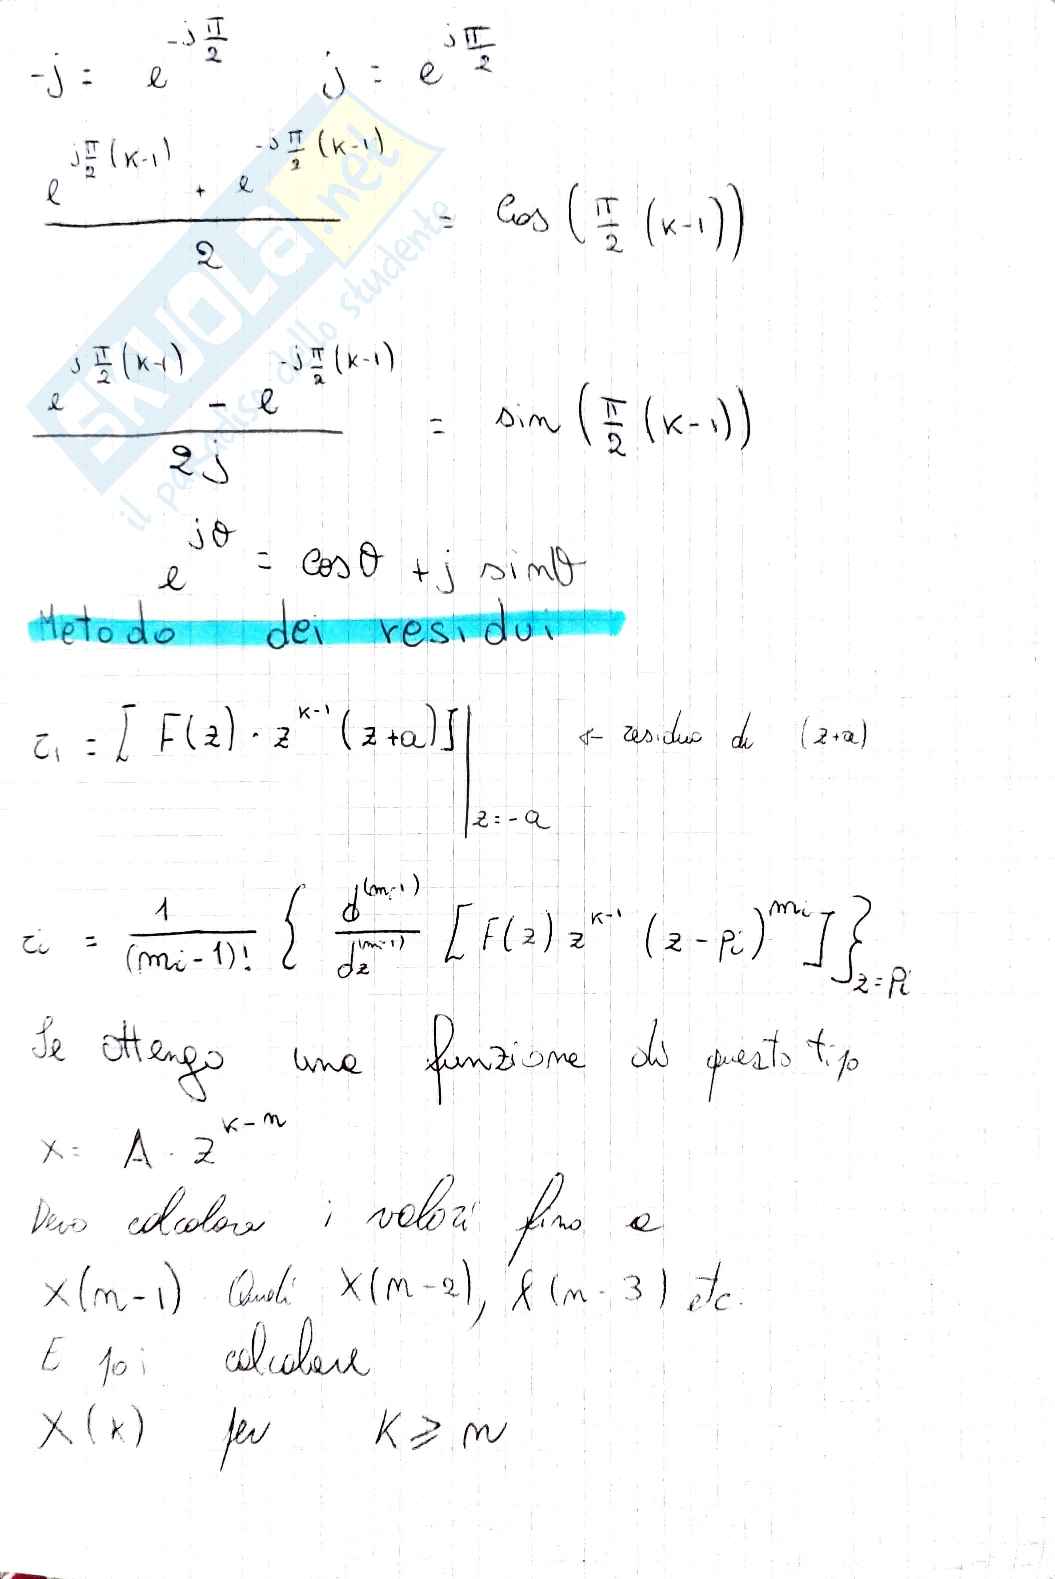 -j = e^{-j π/2}   j = e^{j π/2}
(e^{j π/2 (k-1)} + e^{-j π/2 (k-1)}) / 2 = Cos(π/2 (k-1))
(e^{j π/2 (k-1)} - e^{-j π/2 (k-1)}) / 2j = sin(π/2 (k-1))
e^{jθ} = cosθ + j sinθ
Metodo dei residui
r₁ = [F(z) · z^{k-1} (z+a)] |_{z=-a} ← residuo di (z+a)
rᵢ = 1/(mi-1)! { d^{(mi-1)}/dz^{(mi-1)} [F(z) z^{k-1} (z-pi)^{mi}] }_{z=pi}
Se ottengo una funzione di questo tipo
x = A · z^{k-n}
Devo calcolare i valori fino a
X(n-1) Quindi X(n-2), X(n-3) etc.
E poi calcolare
X(k) per K ⩾ n
SKUOLA.net
il paradiso dello studente